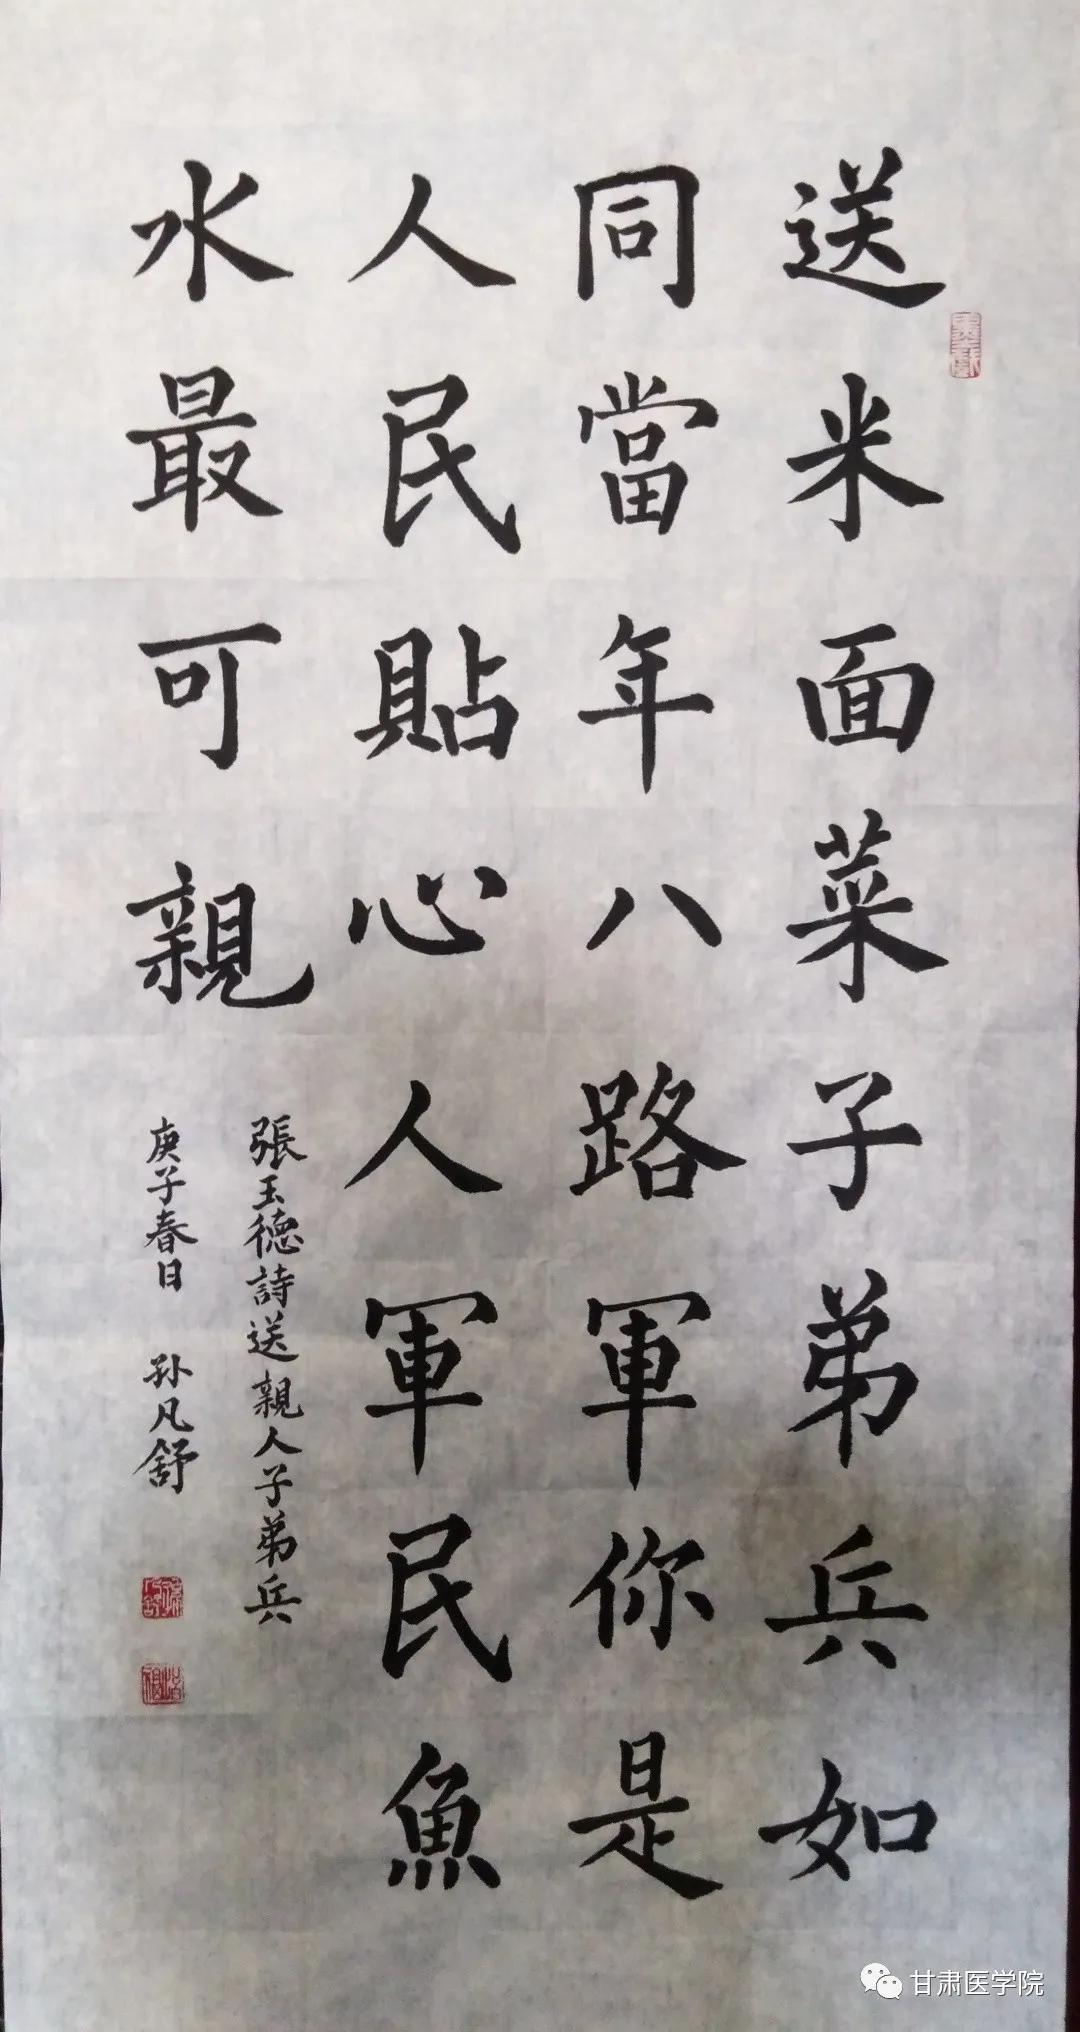 送米面菜子弟兵如
同當年八路軍你是
人民貼心人軍民魚
水最可親
張玉德詩送親人子弟兵
庚子春日 孙凡舒
甘肃医学院